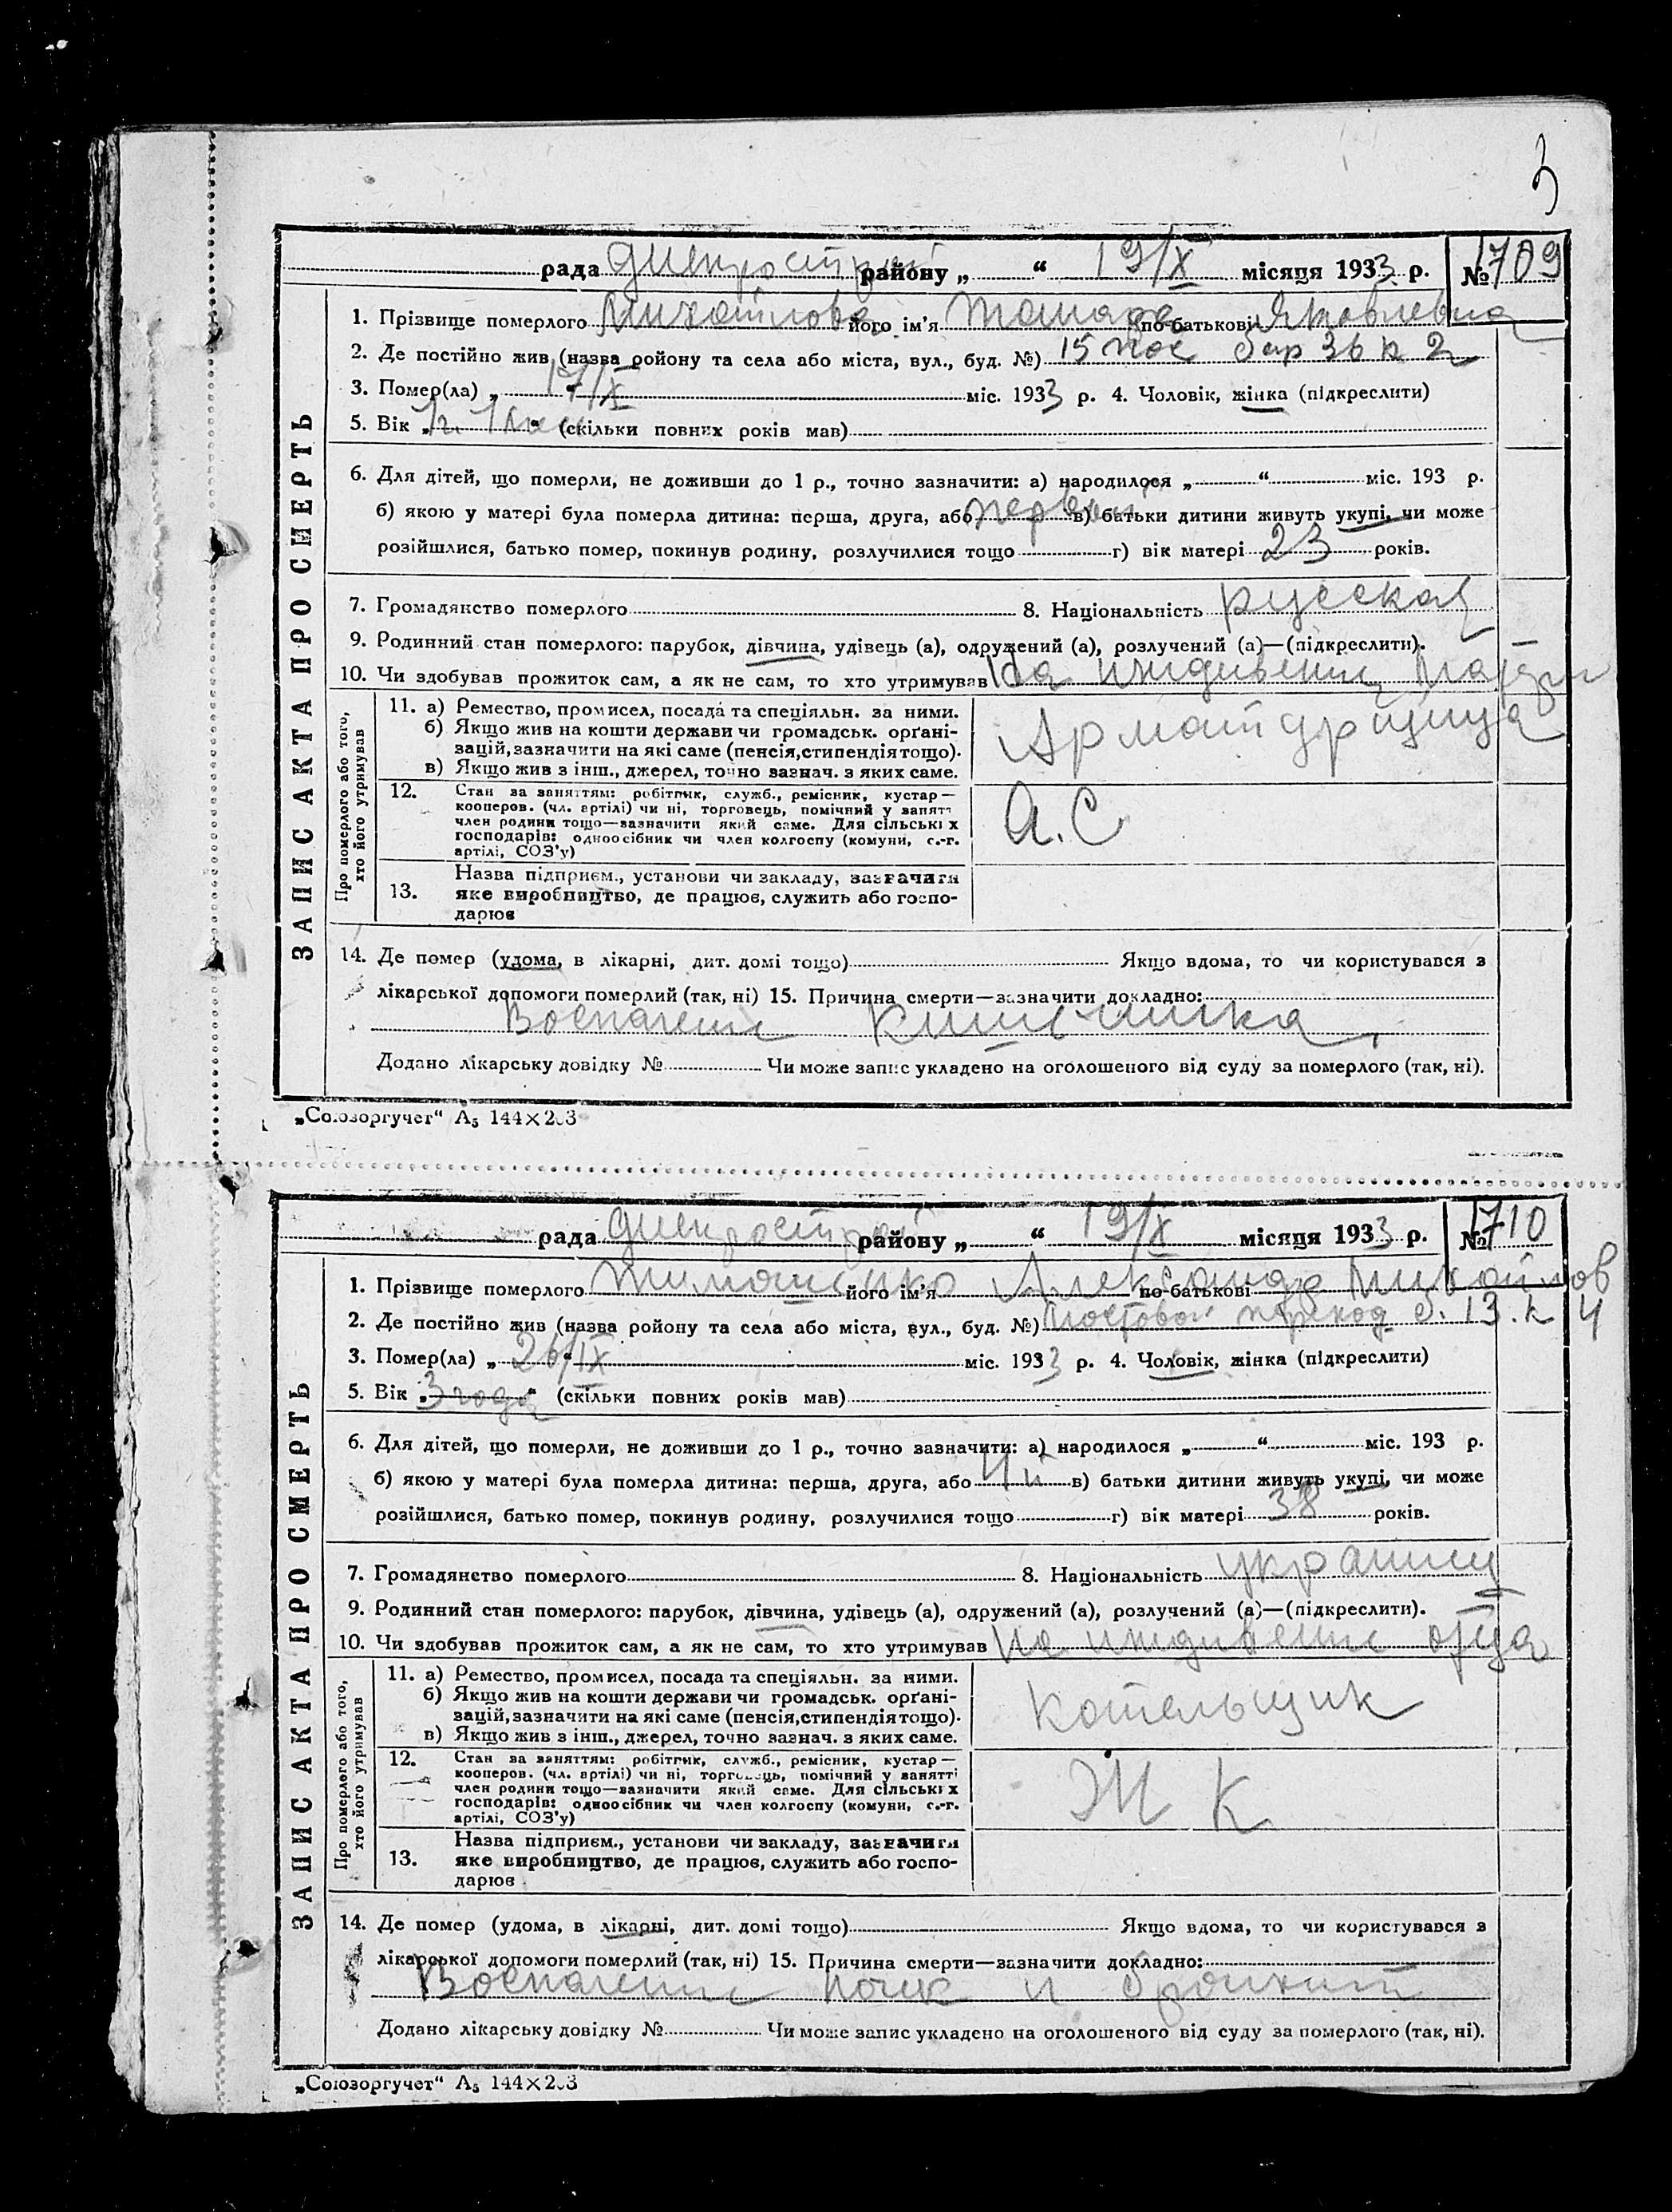 3
рада Днепрострой району „ “ 19/X місяця 1933 р. № 1709
ЗАПИС АКТА ПРО СМЕРТЬ
1. Прізвище померлого Михайлова його ім'я Тамара по-батькові Яковлевна
2. Де постійно жив (назва ройону та села або міста, вул., буд. №) 15 пос бар 36 к 2
3. Помер(ла) „ 17/X міс. 1933 р. 4. Чоловік, жінка (підкреслити)
5. Вік „ 1 г. 1 “ (скільки повних років мав)
6. Для дітей, що померли, не доживши до 1 р., точно зазначити: а) народилося „ “ міс. 193 р.
б) якою у матері була померла дитина: перша, друга, або первый в) батьки дитини живуть укупі, чи може
розійшлися, батько помер, покинув родину, розлучилися тощо г) вік матері 23 років.
7. Громадянство померлого 8. Національність русская
9. Родинний стан померлого: парубок, дівчина, удівець (а), одружений (а), розлучений (а)—(підкреслити).
10. Чи здобував прожиток сам, а як не сам, то хто утримував На иждивении матери
Про померлого або того, хто його утримував
11. а) Ремество, промисел, посада та спеціяльн. за ними.
б) Якщо жив на кошти держави чи громадськ. орґані-
зацій, зазначити на які саме (пенсія, стипендія тощо).
в) Якщо жив з інш., джерел, точно зазнач. з яких саме.
Арматурщица
12. Стан за заняттям: робітник, служб., ремісник, кустар—
кооперов. (чл. артілі) чи ні, торговець, помічний у занятті
член родини тощо—зазначити який саме. Для сільських
господарів: одноосібник чи член колгоспу (комуни, с.-г.
артілі, СОЗ'у)
А.С
13. Назва підприєм., установи чи закладу, зазначити
яке виробництво, де працює, служить або госпо-
дарює
14. Де помер (удома, в лікарні, дит. домі тощо) Якщо вдома, то чи користувався з
лікарської допомоги померлий (так, ні) 15. Причина смерти—зазначити докладно:
Воспаление кишечника
Додано лікарську довідку № Чи може запис укладено на оголошеного від суду за померлого (так, ні).
„Союзоргучет“ А5 144×203
рада Днепрострой району „ “ 19/X місяця 1933 р. № 1710
ЗАПИС АКТА ПРО СМЕРТЬ
1. Прізвище померлого Тимошенко його ім'я Александр по-батькові Михайлов
2. Де постійно жив (назва ройону та села або міста, вул., буд. №) Мостовой переход б. 13. к 4
3. Помер(ла) „ 26/IX міс. 1933 р. 4. Чоловік, жінка (підкреслити)
5. Вік „ 3 года “ (скільки повних років мав)
6. Для дітей, що померли, не доживши до 1 р., точно зазначити: а) народилося „ “ міс. 193 р.
б) якою у матері була померла дитина: перша, друга, або 4й в) батьки дитини живуть укупі, чи може
розійшлися, батько помер, покинув родину, розлучилися тощо г) вік матері 38 років.
7. Громадянство померлого 8. Національність украинец
9. Родинний стан померлого: парубок, дівчина, удівець (а), одружений (а), розлучений (а)—(підкреслити).
10. Чи здобував прожиток сам, а як не сам, то хто утримував На иждивение отца
Про померлого або того, хто його утримував
11. а) Ремество, промисел, посада та спеціяльн. за ними.
б) Якщо жив на кошти держави чи громадськ. орґані-
зацій, зазначити на які саме (пенсія, стипендія тощо).
в) Якщо жив з інш., джерел, точно зазнач. з яких саме.
Котельщик
12. Стан за заняттям: робітник, служб., ремісник, кустар—
кооперов. (чл. артілі) чи ні, торговець, помічний у занятті
член родини тощо—зазначити який саме. Для сільських
господарів: одноосібник чи член колгоспу (комуни, с.-г.
артілі, СОЗ'у)
К
13. Назва підприєм., установи чи закладу, зазначити
яке виробництво, де працює, служить або госпо-
дарює
14. Де помер (удома, в лікарні, дит. домі тощо) Якщо вдома, то чи користувався з
лікарської допомоги померлий (так, ні) 15. Причина смерти—зазначити докладно:
Воспаление почек и бронхит
Додано лікарську довідку № Чи може запис укладено на оголошеного від суду за померлого (так, ні).
„Союзоргучет“ А5 144×203